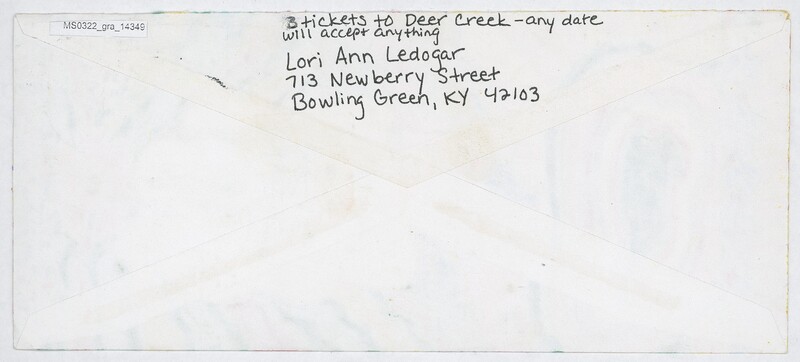 MS0322_gra_14349
3 tickets to Deer Creek - any date
will accept anything
Lori Ann Ledogar
713 Newberry Street
Bowling Green, KY 42103